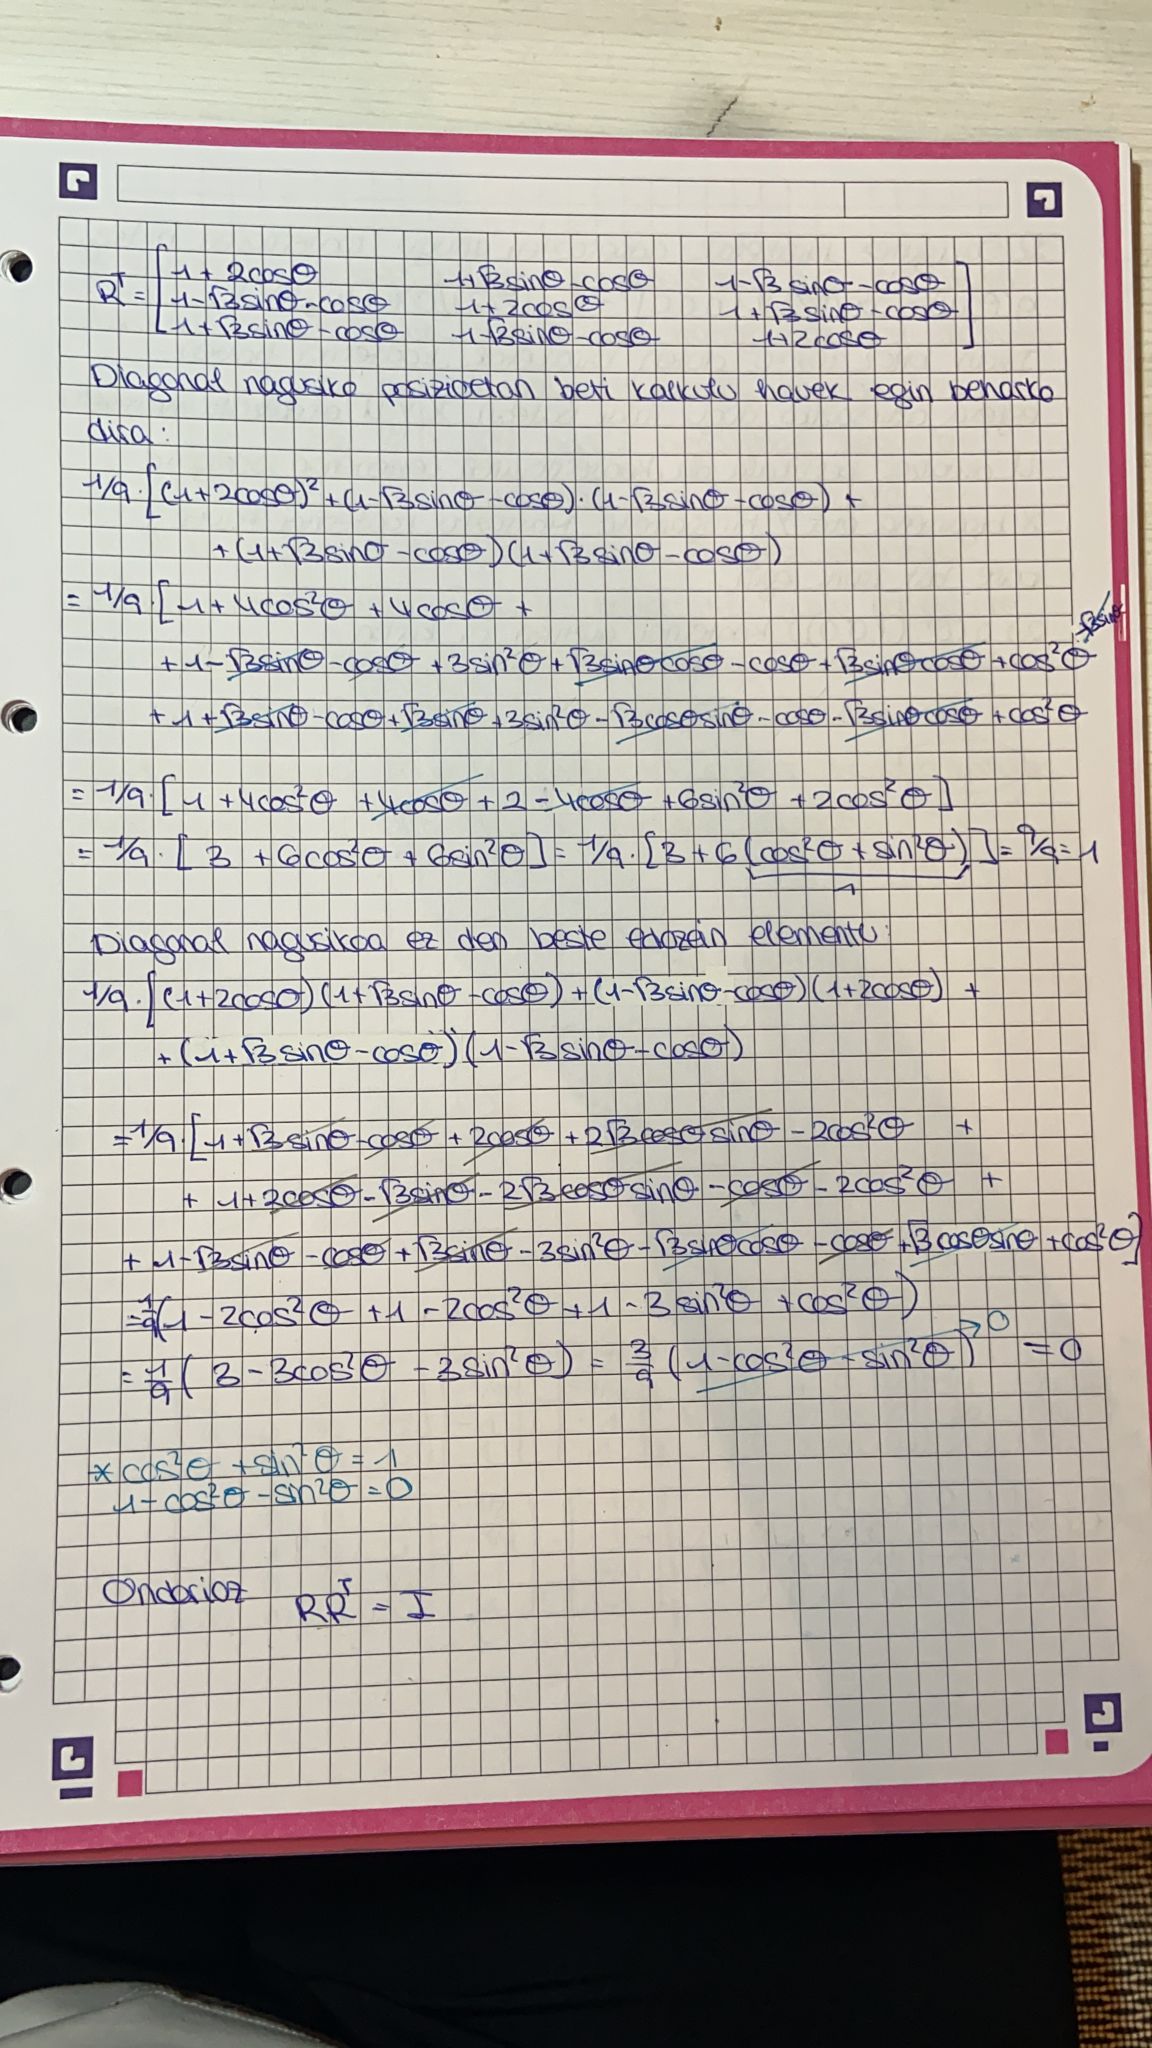 Rᵀ = [ 1 + 2cosθ 1+√3sinθ-cosθ 1-√3 sinθ-cosθ
1-√3sinθ-cosθ 1+2cosθ 1+√3sinθ-cosθ
1+√3sinθ-cosθ 1-√3sinθ-cosθ 1+2cosθ ]
Diagonal nagusiko posizioetan beti kalkulu hauek egin beharko
dira:
1/9·[(1+2cosθ)²+(1-√3sinθ-cosθ)·(1-√3sinθ-cosθ)+
+(1+√3sinθ-cosθ)(1+√3sinθ-cosθ)
= 1/9·[1+4cos²θ+4cosθ+
-√3sinθ
+1-√3sinθ-cosθ+3sin²θ+√3sinθcosθ-cosθ+√3sinθcosθ+cos²θ
+1+√3sinθ-cosθ+√3sinθ+3sin²θ-√3cosθsinθ-cosθ-√3sinθcosθ+cos²θ
= 1/9·[1+4cos²θ+4cosθ+2-4cosθ+6sin²θ+2cos²θ]
= 1/9·[3+6cos²θ+6sin²θ]=1/9·[3+6(cos²θ+sin²θ)]=9/9=1
1
Diagonal nagusikoa ez den beste edozein elementu:
1/9·[(1+2cosθ)(1+√3sinθ-cosθ)+(1-√3sinθ-cosθ)(1+2cosθ)+
+(1+√3sinθ-cosθ)(1-√3sinθ-cosθ)
=1/9·[1+√3sinθ-cosθ+2cosθ+2√3cosθsinθ-2cos²θ+
+1+2cosθ-√3sinθ-2√3cosθsinθ-cosθ-2cos²θ+
+1-√3sinθ-cosθ+√3sinθ-3sin²θ-√3sinθcosθ-cosθ+√3cosθsinθ+cos²θ]
=1/9(1-2cos²θ+1-2cos²θ+1-3sin²θ+cos²θ)
=1/9(3-3cos²θ-3sin²θ)=3/9(1-cos²θ-sin²θ)→0 =0
*cos²θ+sin²θ=1
1-cos²θ-sin²θ=0
Ondorioz RRᵀ = I